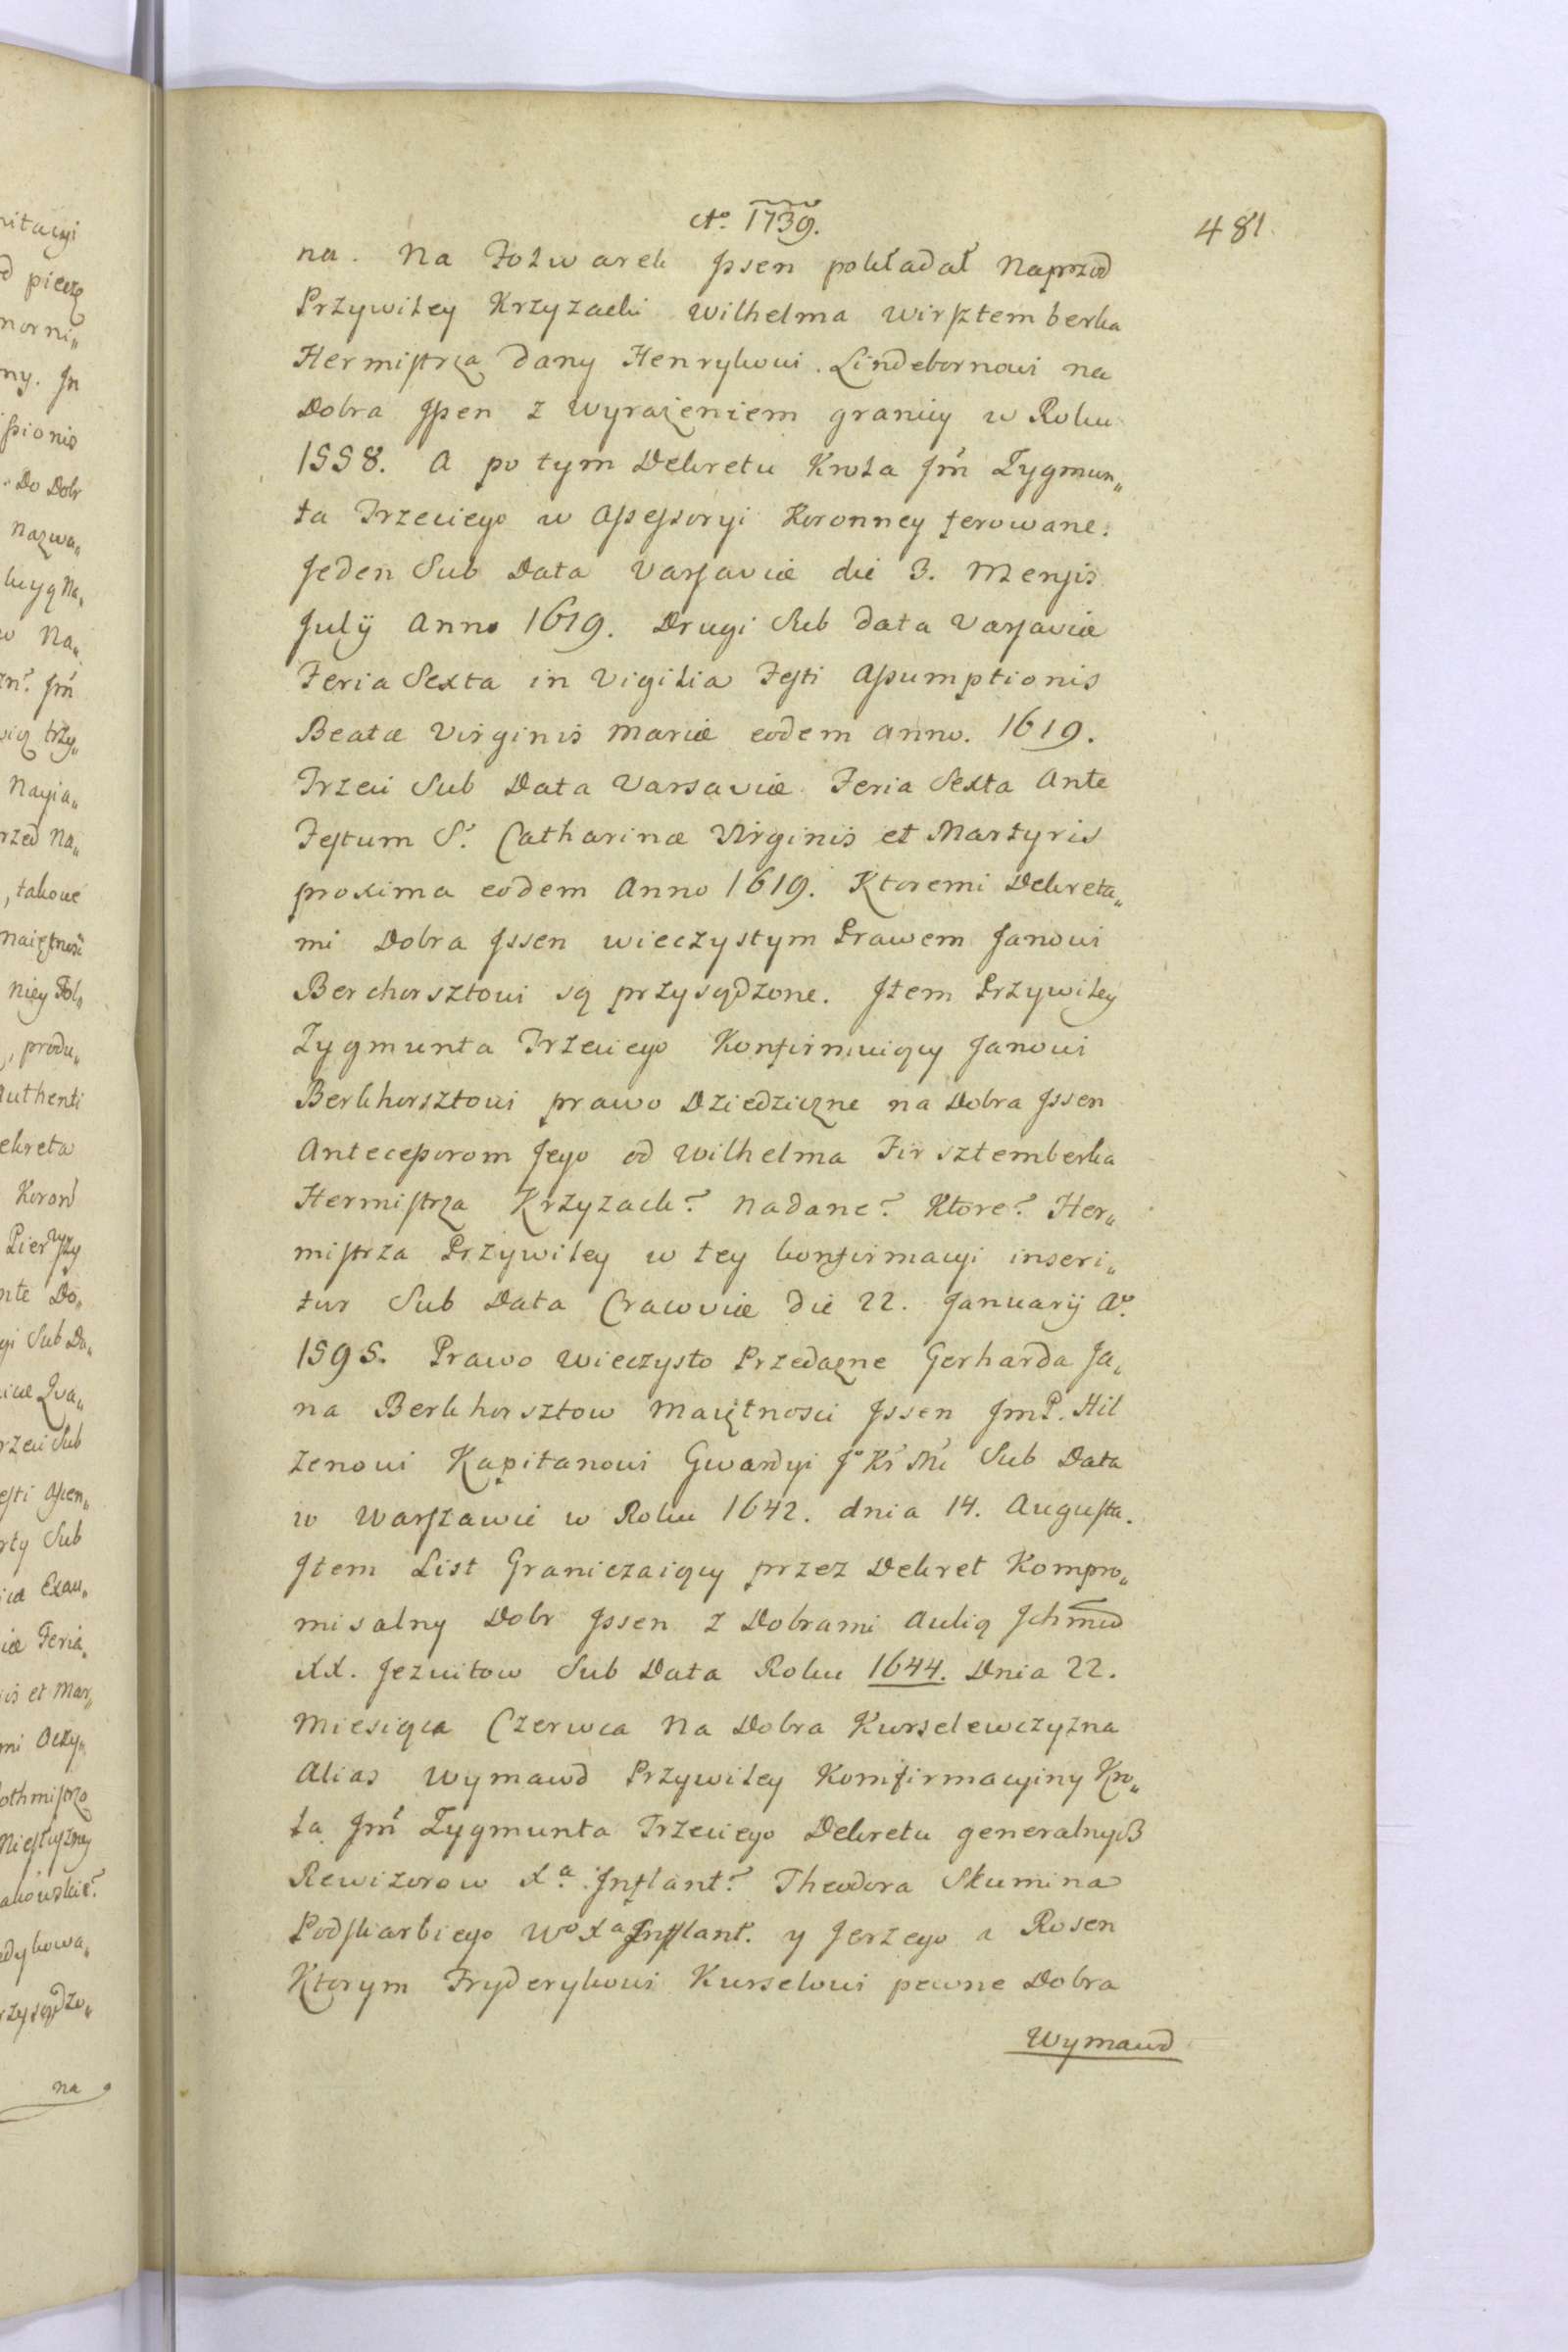 Ao. 1739.
481
na. Na Folwarek Jssen pokładał naprzod
Przywiley Krzyzacki Wilhelma Wirsztemberka
Hermistrza dany Henrykowi Lindebornowi na
Dobra Jssen z wyrażeniem granicy w Roku
1558. A po tym Dekretu Krola Jm̃ Zygmun„
ta Trzeciego w Assessoryi Koronney ferowane.
Jeden Sub Data Varsaviæ die 3. Mensis
July Anno 1619. Drugi Sub data Varsaviæ
Feria Sexta in Vigilia Festi Assumptionis
Beatæ Virginis Mariæ eodem anno. 1619.
Trzeci Sub Data Varsaviæ Feria Sexta Ante
Festum S. Catharinæ Virginis et Martyris
proxima eodem Anno 1619. Ktoremi Dekreta„
mi Dobra Jssen wieczystym Prawem Janowi
Berchorsztowi są przysądzone. Jtem Przywiley
Zygmunta Trzeciego Konfirmuiący Janowi
Berkhorsztowi prawo Dziedziczne na Dobra Jssen
Antecessorom Jego od Wilhelma Firsztemberka
Hermistrza Krzyzack? nadane? Ktore? Her„
mistrza Przywiley w tey konfirmacyi inseri„
tur Sub Data Cracoviæ die 22. January Ao.
1595. Prawo Wieczysto Przedażne Gerharda Ja„
na Berkhorsztow Maiętnosci Jssen JmP. Hil
zenowi Kapitanowi Gwardyi Jo Kr Mci Sub Data
w Warszawie w Roku 1642. dnia 14. Augusta.
Jtem List Graniczaiący przez Dekret Kompro„
misalny Dobr Jssen z Dobrami Aulią Jchmciow
XX. Jezuitow Sub Data Roku 1644. Dnia 22.
Miesiąca Czerwca Na Dobra Kurselewczyzna
Alias Wymawd Przywiley Komfirmacyiny Kro„
la Jm̃ Zygmunta Trzeciego Dekretu generalnych
Rewizorow Xa. Jnflant? Theodora Skumina
Podskarbiego Wo Xa Jnflant. y Jerzego a Rosen
Ktorym Fryderykowi Kurselowi pewne Dobra
Wymawd
nitacyi
d pieczę
morni„
ny. Jn
ssionis
. Do Dobr
nazwa„
w Na„
zn? Jm̃
Nayia„
rzed Na„
, takowe
maiętnosc
niey Fol„
, produ„
Authenti
ekreta
Koron
Pierwszy
nte Do„
gi Sub Da„
rzeci Sub
rty Sub
iæ Feria
is et Mar„
mi Oczy„
othmistrza
Niesłuszney
akowskie?
dykowa„
rzysądzo„
na